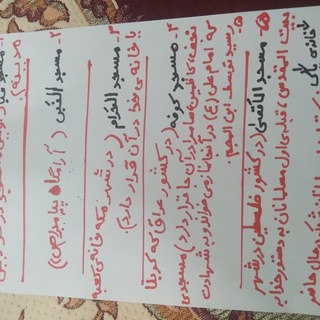 ۱- مسجد قبا
مدینه.
۲- مسجد النبی (آرامگاه پیامبر(ص))
۳- مسجد الحرام (در شهر مکه خانه ی کعبه
یا خانه ی خدا در آن قرار دارد).
۴- مسجد کوفه (در کشور عراق که کربلا
نجف، کاظمین، سامرا در آن جا قرار دارد) مسجدی
که امام علی (ع) در آنجا نماز می خواند و به شهادت
رسید توسط ابن الجم.
۵-
۵- مسجد الأقصی (در کشور فلسطین در شهر
بیت المقدس، قبله ی اول مسلمانان به دستور خدا به
خانه ی
مسلمانان حال حاضر